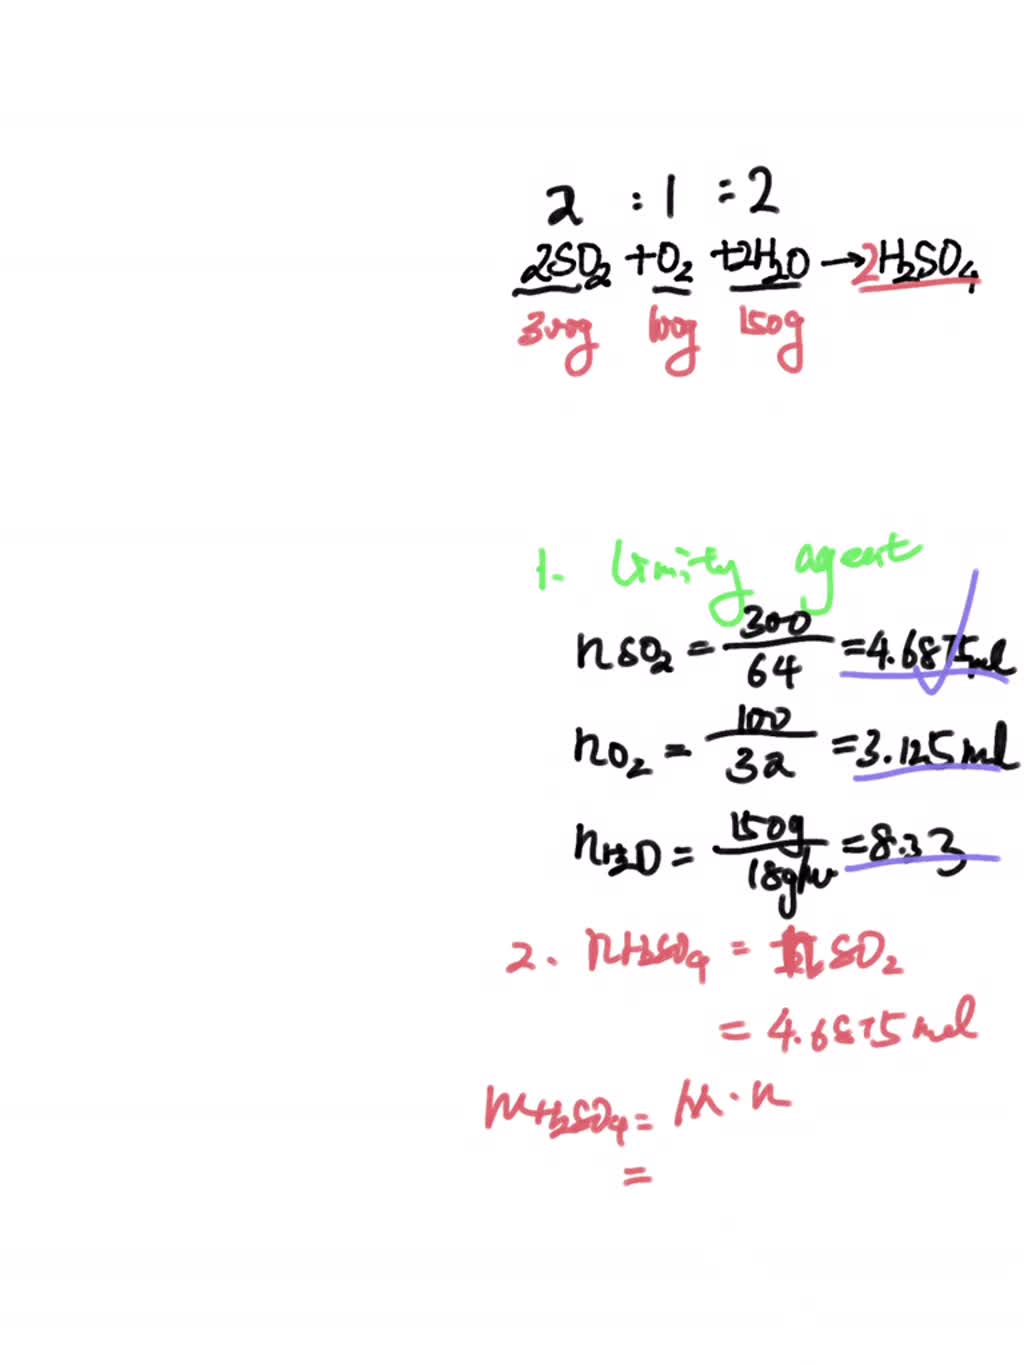 2 : 1 = 2
2SO₂ + O₂ + 2H₂O → 2H₂SO₄
300g 100g 150g
1. limity agent
nSO₂ = 300/64 = 4.6875mol
nO₂ = 100/32 = 3.125mol
nH₂O = 150g/18g/m = 8.33
2. nH₂SO₄ = nSO₂
= 4.6875mol
mH₂SO₄ = M·n
=